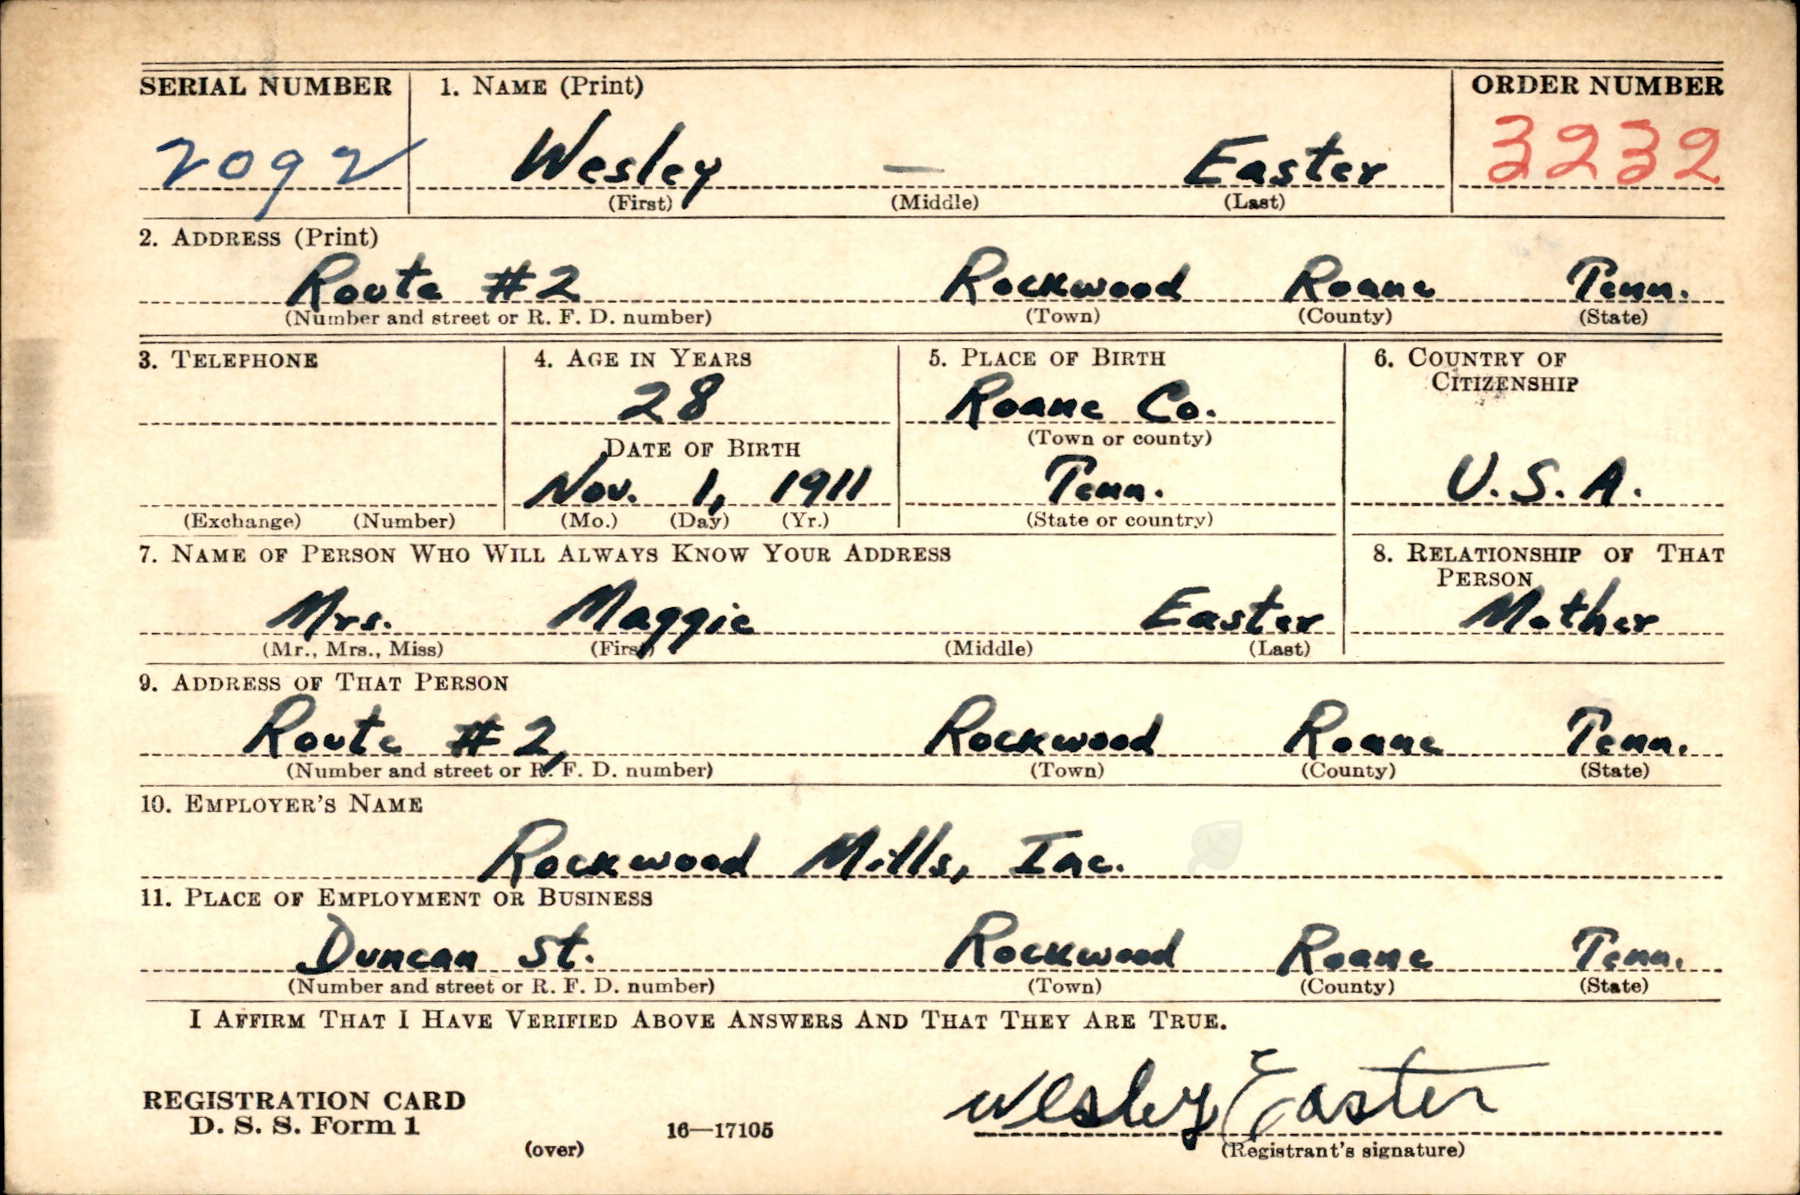 SERIAL NUMBER 1. NAME (Print) ORDER NUMBER
2092 Wesley — Easter 3232
(First) (Middle) (Last)
2. ADDRESS (Print)
Route #2 Rockwood Roane Tenn.
(Number and street or R. F. D. number) (Town) (County) (State)
3. TELEPHONE 4. AGE IN YEARS 5. PLACE OF BIRTH 6. COUNTRY OF
CITIZENSHIP
28 Roane Co.
(Town or county)
DATE OF BIRTH
Nov. 1, 1911 Tenn. U.S.A.
(Exchange) (Number) (Mo.) (Day) (Yr.) (State or country)
7. NAME OF PERSON WHO WILL ALWAYS KNOW YOUR ADDRESS 8. RELATIONSHIP OF THAT
PERSON
Mrs. Maggie Easter Mother
(Mr., Mrs., Miss) (First) (Middle) (Last)
9. ADDRESS OF THAT PERSON
Route #2, Rockwood Roane Tenn.
(Number and street or R. F. D. number) (Town) (County) (State)
10. EMPLOYER'S NAME
Rockwood Mills, Inc.
11. PLACE OF EMPLOYMENT OR BUSINESS
Duncan St. Rockwood Roane Tenn.
(Number and street or R. F. D. number) (Town) (County) (State)
I AFFIRM THAT I HAVE VERIFIED ABOVE ANSWERS AND THAT THEY ARE TRUE.
Wesley Easter
REGISTRATION CARD
D. S. S. Form 1 16—17105
(over) (Registrant's signature)